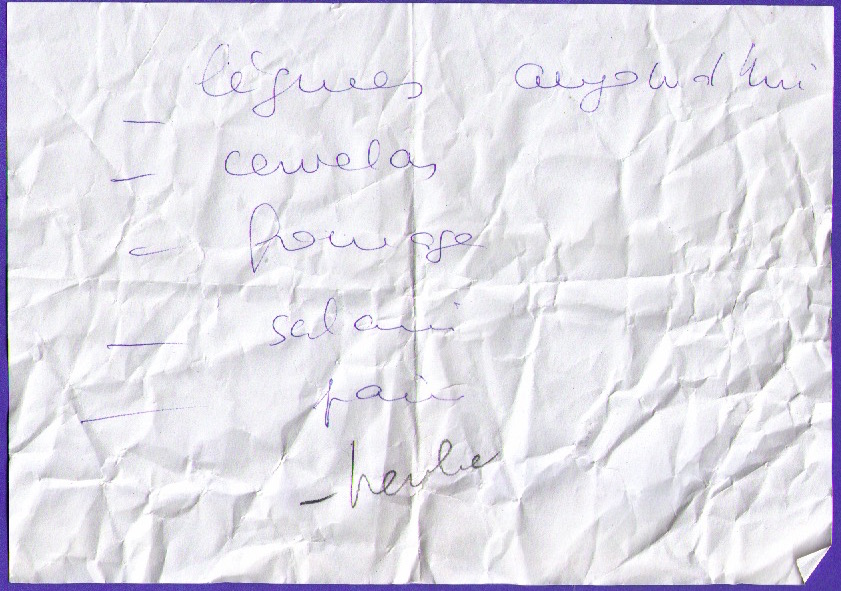 - légumes aujourd'hui
- cervelas
- fromage
- salami
- pain
- herbe